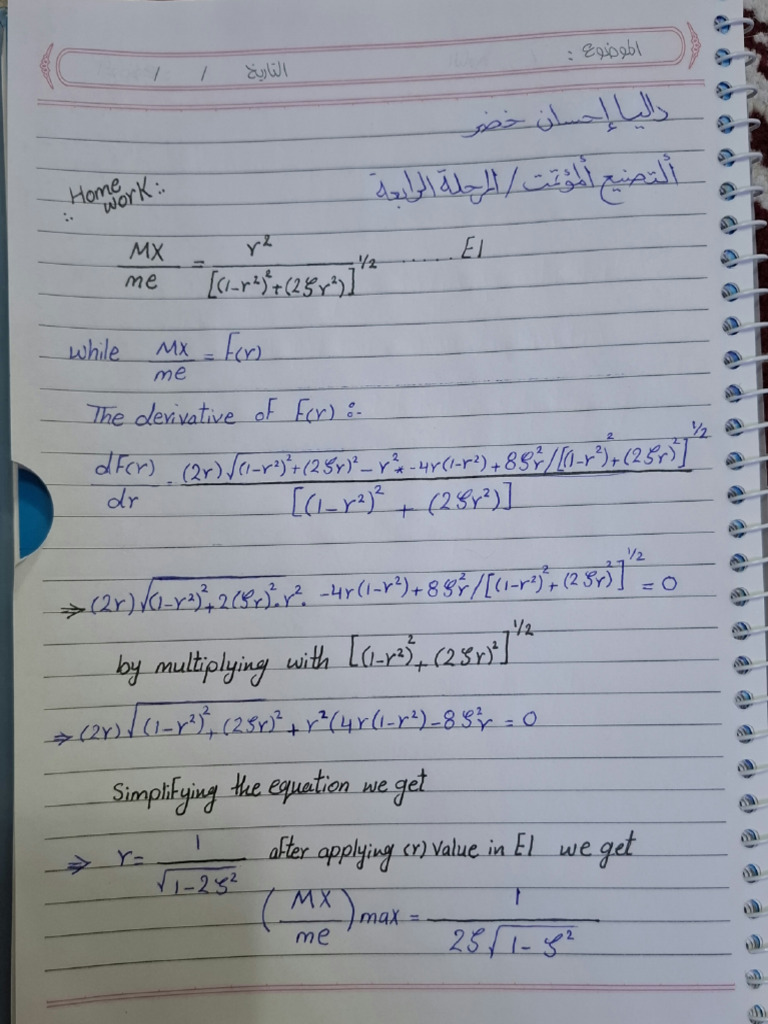 الموضوع :
التاريخ / /
داليا إحسان خضر
ألتصنيع ألمؤتمت / المرحلة الرابعة
Home work::
MX/me = r²/[(1-r²)²+(2ζr²)]^1/2 ...... E1
while MX/me = F(r)
The derivative of F(r) :-
dF(r)/dr = (2r)√(1-r²)²+(2ζr)² - r² * -4r(1-r²) + 8ζ²r/[(1-r²)²+(2ζr)²]^1/2 / [(1-r²)² + (2ζr²)]
⇒ (2r)√(1-r²)²+2(ζr)² - r² · -4r(1-r²)+8ζ²r/[(1-r²)²+(2ζr)²]^1/2 = 0
by multiplying with [(1-r²)²+(2ζr)²]^1/2
⇒ (2r)√(1-r²)²+(2ζr)² + r²(4r(1-r²)-8ζ²r = 0
Simplifying the equation we get
⇒ r = 1/√1-2ζ² after applying (r) value in E1 we get
(MX/me)max = 1/2ζ√1-ζ²